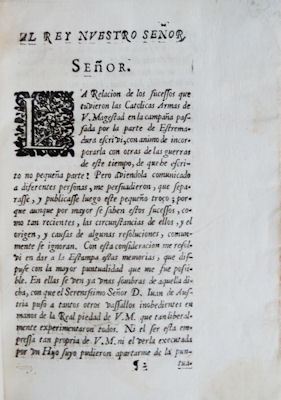 AL REY NVESTRO SEÑOR,
SEÑOR.
LA Relacion de los sucessos que
tuvieron las Catolicas Armas de
V. Magestad en la campaña pas-
sada por la parte de Estrema-
dura escrivi, con animo de incor-
porarla con otras de las guerras
de este tiempo, de que he escri-
to no pequeña parte: Pero aviendola comunicado
a diferentes personas, me persuadieron, que sepa-
rasse, y publicasse luego este pequeño troço; por-
que aunque por mayor se saben estos sucessos, co-
mo tan recientes, las circunstancias de ellos, y el
origen, y causas de algunas resoluciones, comun-
mente se ignoran. Con esta consideracion me resol-
vi en dar a la Estampa estas memorias, que dis-
puse con la mayor puntualidad que me fue posi-
ble. En ellas se ven ya vnas sombras de aquella di-
cha, con que el Serenissimo Señor D. Iuan de Aus-
tria puso a tantos otros vassallos inobedientes en
manos de la Real piedad de V.M. que tan liberal-
mente experimentaron todos. Ni el ser esta em-
pressa tan propria de V.M. ni el verla executada
por vn Hijo suyo pudieron apartarme de la pun-
tua-